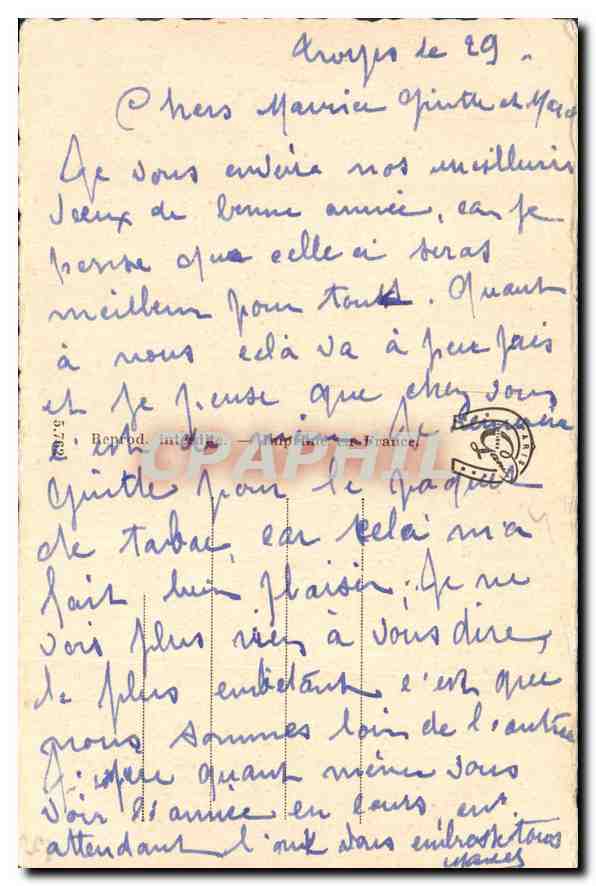 Troyes le 29.
Chers Maurice Ginette et
Je vous envoie nos meilleurs
veux de bonne année, car je
pense que celle ci seras
meilleur pour tous. Quant
à nous cela va à peu près
et je pense que chez vous
5.762
Reprod. interdite. — Imprimé en France.
PARIS
CPAPHIL
c'est de même. Je remercie
Ginette pour le paquet
de tabac, car cela m'a
fait bien plaisir; Je ne
vois plus rien à vous dire,
le plus embêtant c'est que
nous sommes loin de l'autre
J'espère quant même vous
voir l'année en cours, en
attendant l'oncle vous embrasse tous